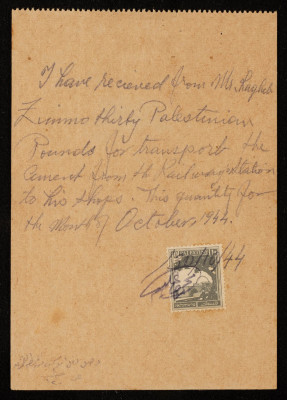 I have recieved from Mr. Raghib
Zimmo thirty Palestinian
Pounds for transport the
cement from the Railway station
to his shops. This quantity for
the Month of October 1944.
20/10/44